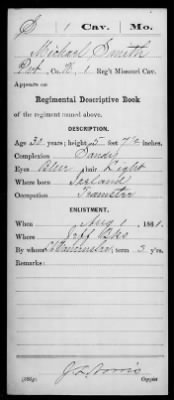 S 1 Cav. Mo.
Michael Smith
Pvt, Co. K, 1 Reg't Missouri Cav.
Appears on
Regimental Descriptive Book
of the regiment named above.
DESCRIPTION.
Age 30 years; height 5 feet 7 1/2 inches.
Complexion Sandy
Eyes Blue; hair Light
Where born Ireland
Occupation Teamster
ENLISTMENT.
When Aug 1, 1861.
Where Jeff Bks
By whom; term 3 y'rs.
Remarks:
Copyist.